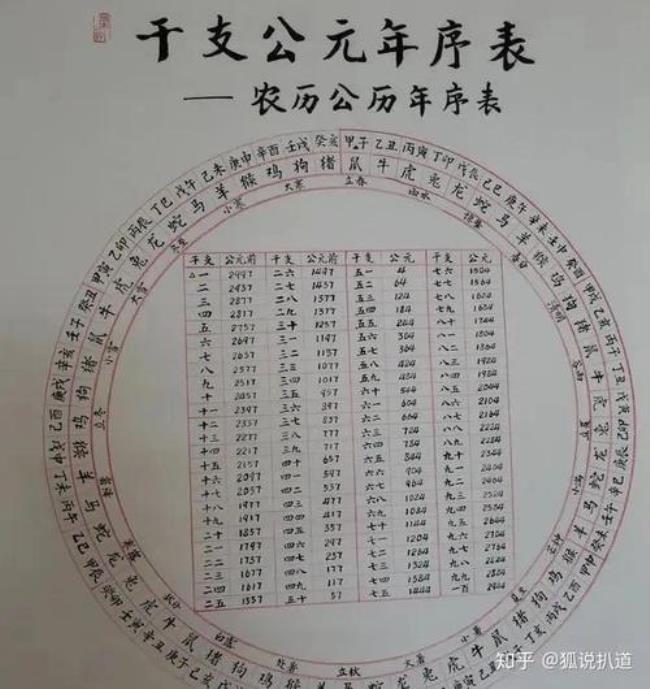 干支公元年序表
——农历公历年序表
甲子 乙丑 丙寅 丁卯 戊辰 己巳 庚午 辛未 壬申 癸酉 甲戌 乙亥 丙子 丁丑 戊寅 己卯 庚辰 辛巳 壬午 癸未 甲申 乙酉 丙戌 丁亥
庚子 辛丑 壬寅 癸卯 甲辰 乙巳 丙午 丁未 戊申 己酉 庚戌 辛亥 壬子 癸丑 甲寅 乙卯 丙辰 丁巳 戊午 己未 庚申 辛酉 壬戌 癸亥
鼠 牛 虎 兔 龙 蛇 马 羊 猴 鸡 狗 猪 鼠 牛 虎 兔 龙 蛇 马 羊 猴 鸡 狗 猪 鼠 牛 虎 兔 龙 蛇 马 羊 猴 鸡 狗 猪 鼠 牛 虎 兔 龙 蛇 马 羊 猴 鸡 狗 猪 鼠 牛 虎 兔 龙 蛇 马 羊 猴 鸡 狗 猪
立春 雨水 春分 清明 谷雨 立夏 小满 芒种 夏至 小暑 大暑 立秋 处暑 白露 秋分 立冬 小雪 大雪 冬至 小寒 大寒
干支 公元前 干支 公元前 干支 公元 干支 公元
△一 2997 二六 1497 五一 4 七六 1504
二 2937 二七 1437 五二 64 七七 1564
三 2877 二八 1377 五三 124 七八 1624
四 2817 二九 1317 五四 184 七九 1684
五 2757 三十 1257 五五 244 八十 1744
六 2697 三一 1197 五六 304 八一 1804
七 2637 三二 1137 五七 364 八二 1864
八 2577 三三 1077 五八 424 八三 1924
九 2517 三四 1017 五九 484 八四 1984
十 2457 三五 957 六十 544 八五 2044
十一 2397 三六 897 六一 604 八六 2104
十二 2337 三七 837 六二 664 八七 2164
十三 2277 三八 777 六三 724 八八 2224
十四 2217 三九 717 六四 784 八九 2284
十五 2157 四十 657 六五 844 九十 2344
十六 2097 四一 597 六六 904 九一 2404
十七 2037 四二 537 六七 964 九二 2464
十八 1977 四三 477 六八 1024 九三 2524
十九 1917 四四 417 六九 1084 九四 2584
二十 1857 四五 357 七十 1144 九五 2644
二一 1797 四六 297 七一 1204 九六 2704
二二 1737 四七 237 七二 1264 九七 2764
二三 1677 四八 177 七三 1324 九八 2824
二四 1617 四九 117 七四 1384 九九 2884
二五 1557 五十 57 七五 1444 一百 2944
知乎 @狐说扒道